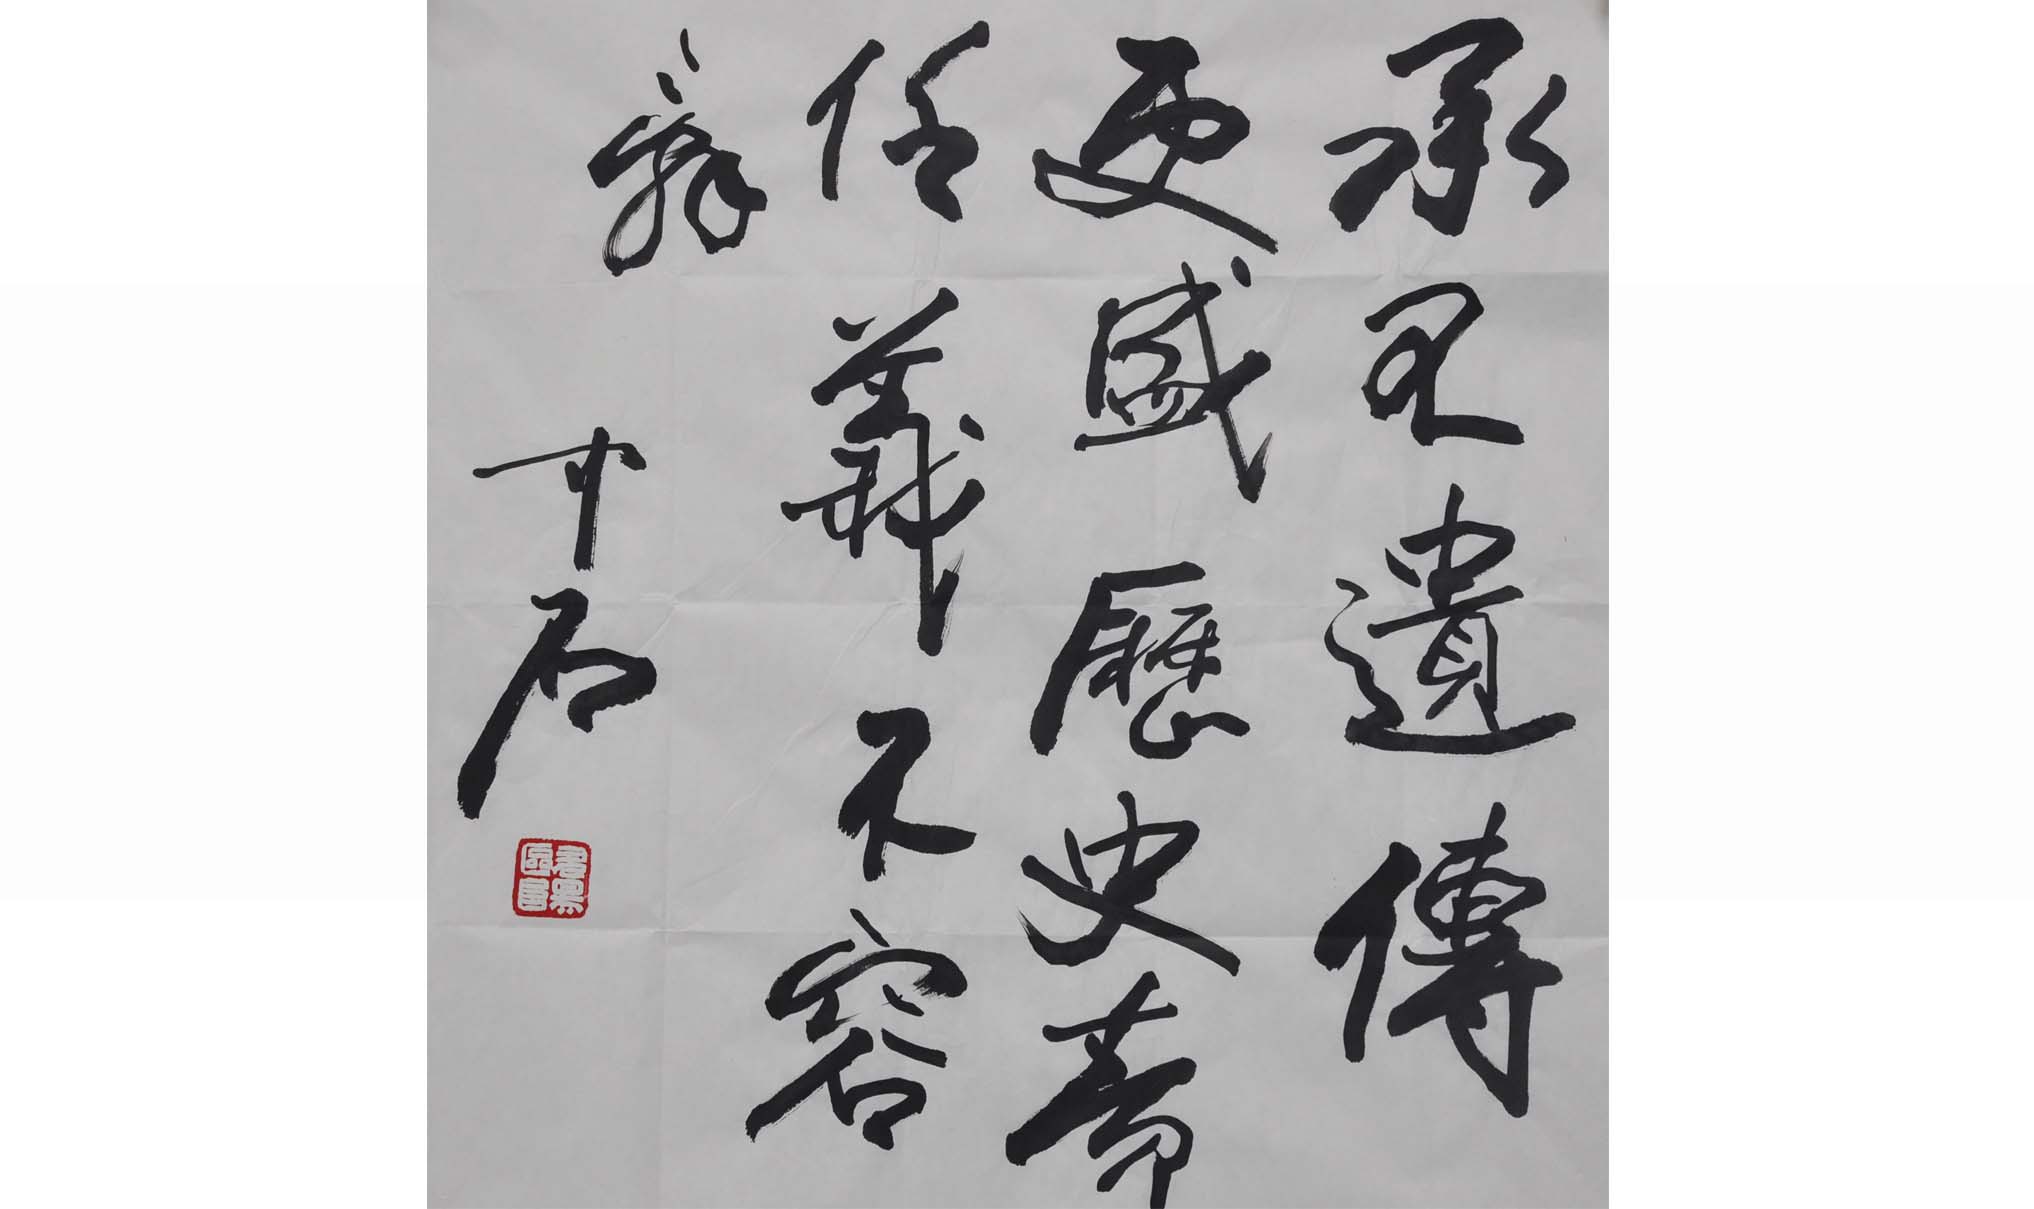 承遺傳
更盛歷史責
任義不容
辭
中石